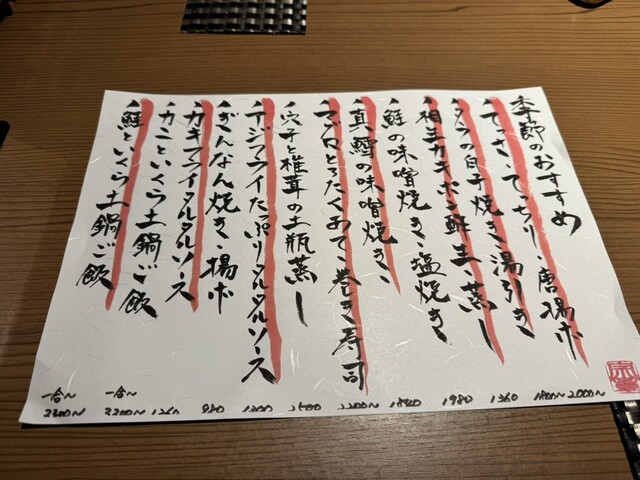 季節のおすすめ
・てっさ・てっちり・唐揚げ
・タラの白子焼き・湯引き
・相生カキポン酢・生・蒸し
・鮭の味噌焼き・塩焼き
・真鱈の味噌焼き
・マグロとろたくあて巻き寿司
・穴子と椎茸の土瓶蒸し
・アジフライたっぷりタルタルソース
・ぎんなん焼き・揚げ
・カキフライタルタルソース
・カニといくら土鍋ご飯
・鮭といくら土鍋ご飯
1800〜2000〜
1260
1980
2200〜
1200
980
1260
一合〜
3300〜
一合〜
2300〜